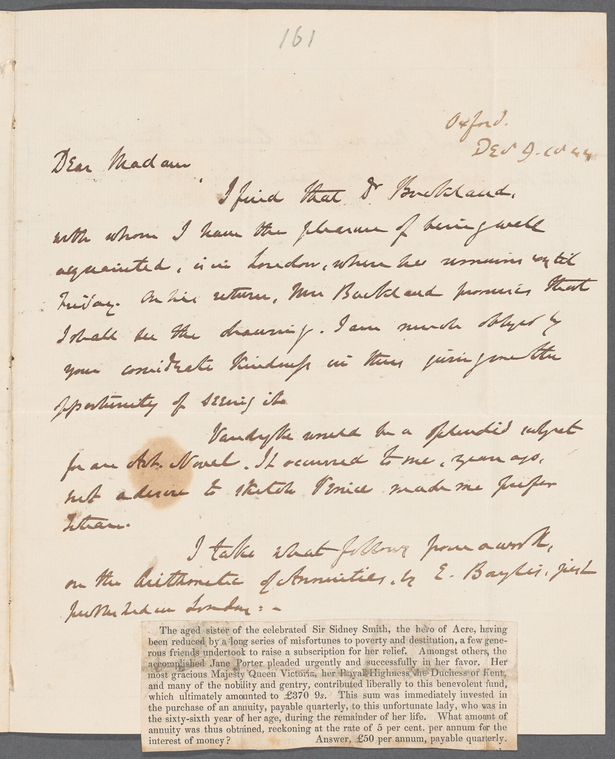 161
Oxford.
Dec 9. 1844
Dear Madam,
I find that Dr Buckland,
with whom I have the pleasure of being well
acquainted, is in London, where he remains until
Friday. On his return, Mrs Buckland promises that
I shall see the drawing. I am much obliged by
your considerate kindness in thus giving me the
opportunity of seeing it.
Vandyke would be a splendid subject
for an Art-Novel. It occurred to me, years ago,
but a desire to sketch Venice made me prefer
Titian.
I take what follows from a work,
on the Arithmetic of Annuities, by E. Baylis, just
published in London: -
The aged sister of the celebrated Sir Sidney Smith, the hero of Acre, having
been reduced by a long series of misfortunes to poverty and destitution, a few gene-
rous friends undertook to raise a subscription for her relief. Amongst others, the
accomplished Jane Porter pleaded urgently and successfully in her favor. Her
most gracious Majesty Queen Victoria, her Royal Highness the Duchess of Kent,
and many of the nobility and gentry, contributed liberally to this benevolent fund,
which ultimately amounted to £370 9s. This sum was immediately invested in
the purchase of an annuity, payable quarterly, to this unfortunate lady, who was in
the sixty-sixth year of her age, during the remainder of her life. What amount of
annuity was thus obtained, reckoning at the rate of 5 per cent. per annum for the
interest of money? Answer, £50 per annum, payable quarterly.